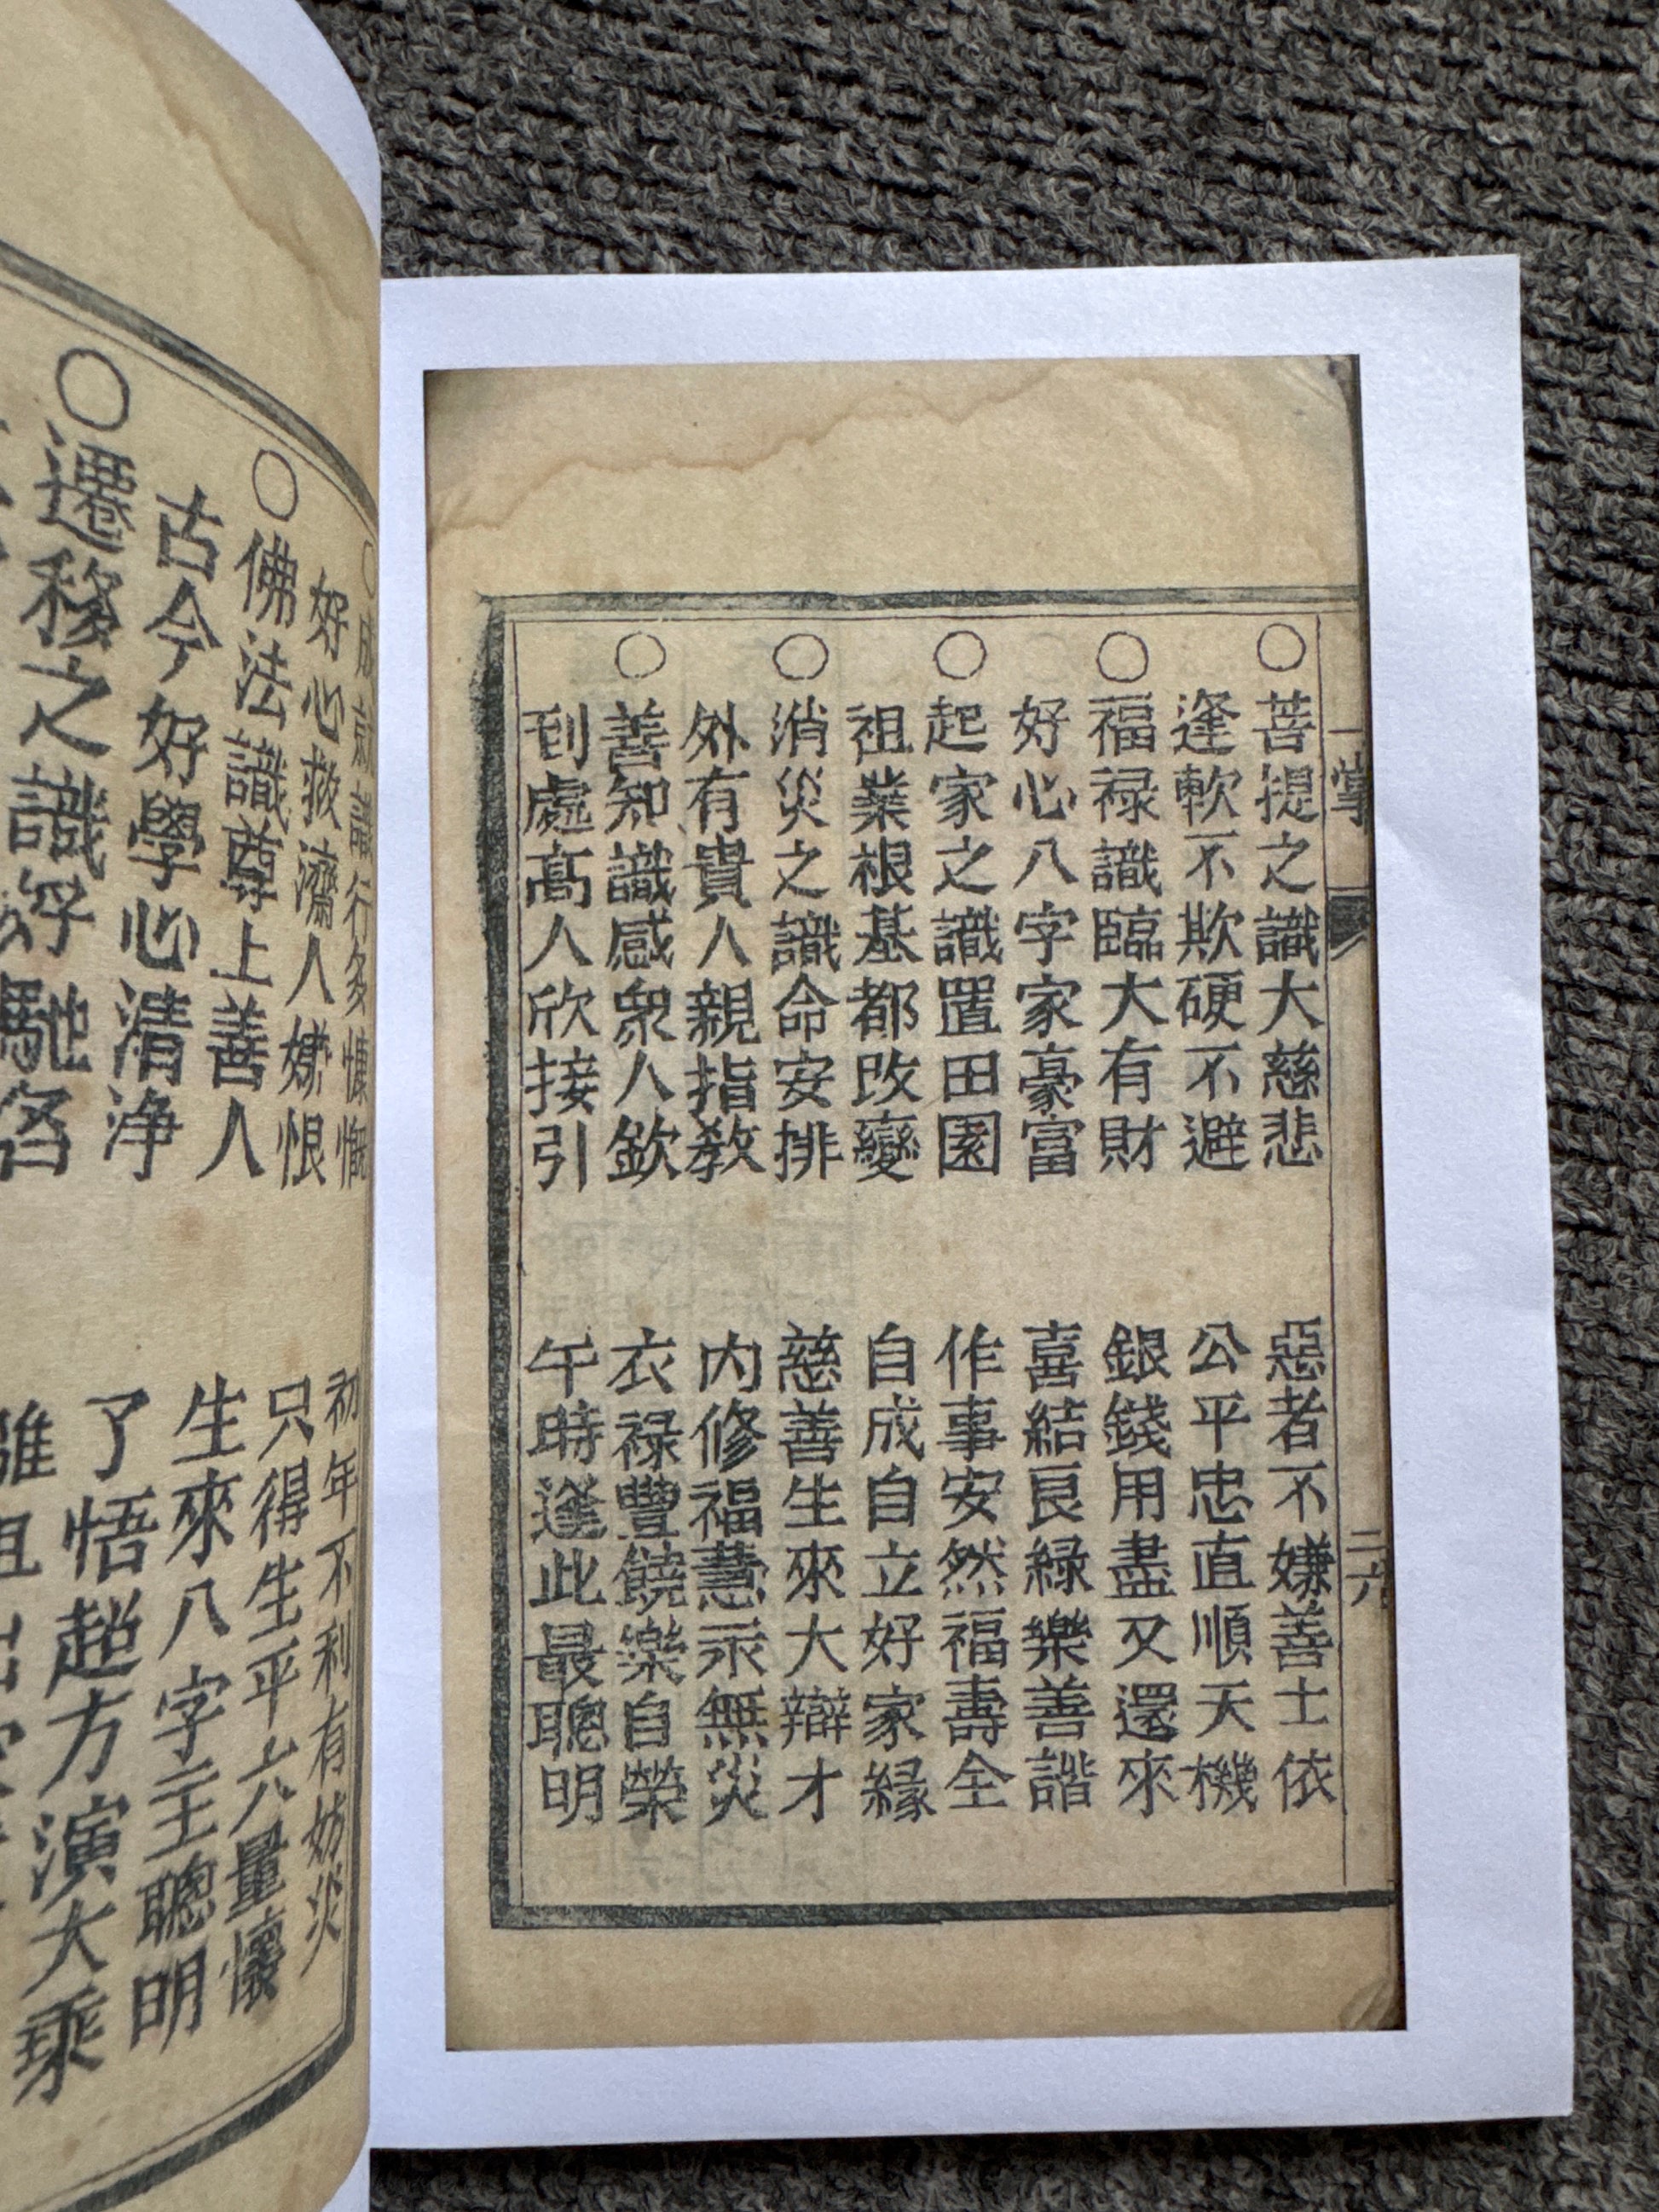 一掌
二六
○菩提之識大慈悲 惡者不嫌善士依
逢軟不欺硬不避 公平忠直順天機
○福禄識臨大有財 銀錢用盡又還來
好心八字家豪富 喜結良緑樂善諧
○起家之識置田園 作事安然福壽全
祖業根基都改變 自成自立好家緣
○消災之識命安排 慈善生來大辯才
外有貴人親指教 内修福慧永無災
○善知識感衆人欽 衣禄豐饒樂自榮
到處高人欣接引 午時逢此最聰明
○成就識行多慷慨 初年不利有妨災
好心救濟人嫌恨 只得生平六量懷
○佛法識尊上善人 生來八字主聰明
古今好學心清浄 了悟超方演大乘
○遷移之識好馳名